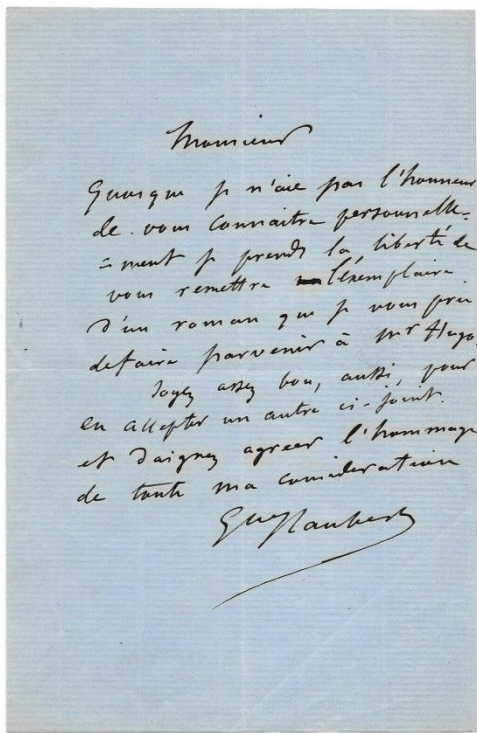 Monsieur
Quoique je n'aie pas l'honneur
de vous connaitre personnelle=
=ment je prends la liberté de
vous remettre l'exemplaire
d'un roman que je vous prie
de faire parvenir à Mr Hugo.
Soyez assez bon, aussi, pour
en accepter un autre ci-joint.
et daignez agreer l'hommage
de toute ma consideration
Gve Flaubert